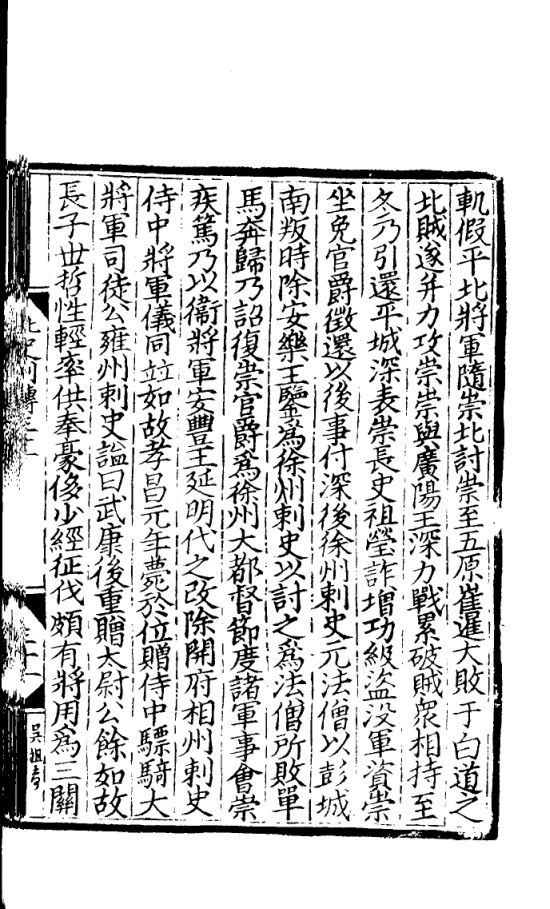 軌假平北將軍隨崇北討崇至五原崔暹大敗于白道之
北賊遂并力攻崇崇與廣陽王深力戰累破賊衆相持至
冬乃引還平城深表崇長史祖瑩詐增功級盜没軍資崇
坐免官爵徵還以後事付深後徐州剌史元法僧以彭城
南叛時除安樂王鑒爲徐州剌史以討之爲法僧所敗單
馬奔歸乃詔復崇官爵爲徐州大都督節度諸軍事會崇
疾篤乃以衞將軍安豐王延明代之改除開府相州剌史
侍中將軍儀同竝如故孝昌元年薨於位贈侍中驃騎大
將軍司徒公雍州剌史謚曰武康後重贈太尉公餘如故
長子丗哲性輕率供奉豪侈少經征伐頗有將用爲三關
北史列傳三十一
吳祖